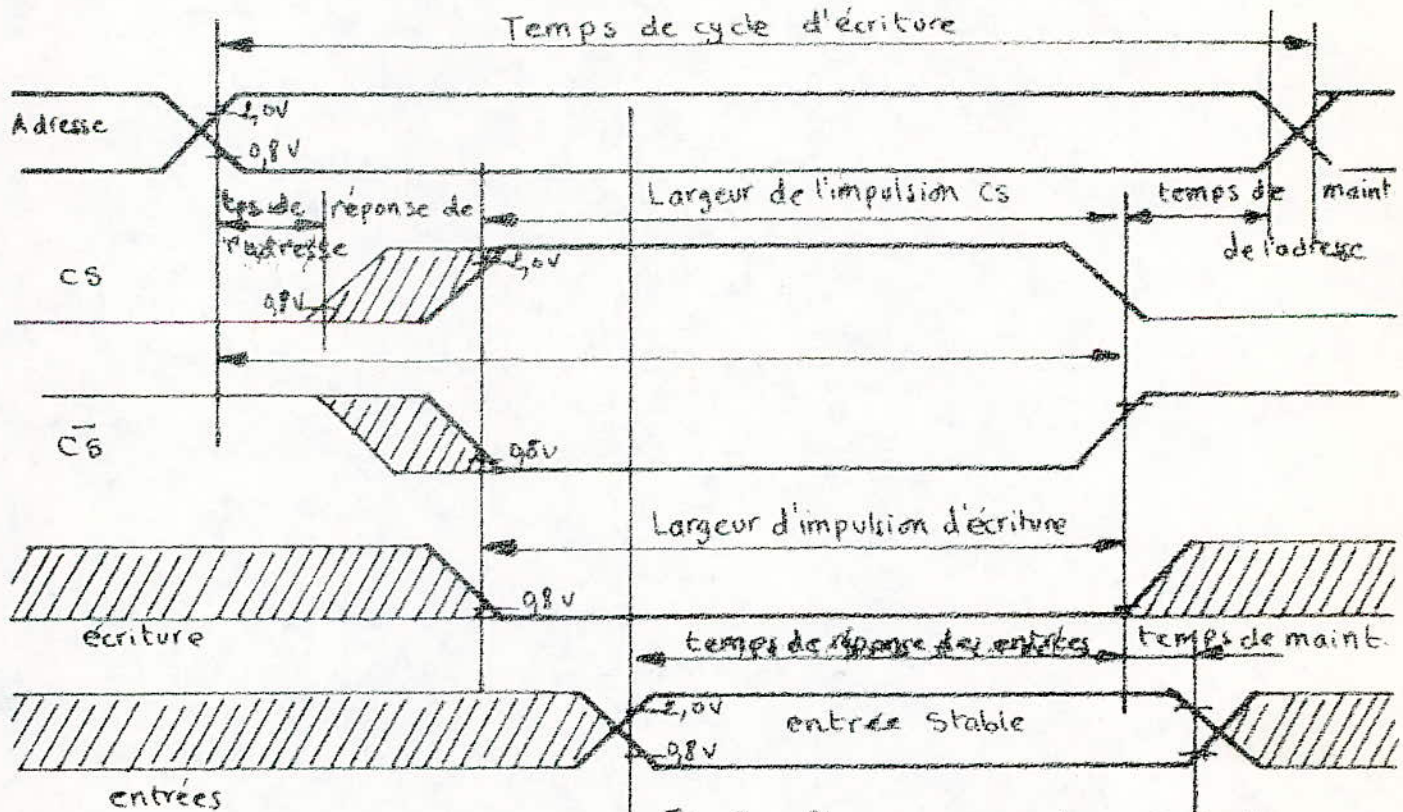 Temps de cycle d'écriture
Adresse
2,0V
0,8V
tps de réponse de
l'adresse
Largeur de l'impulsion CS
temps de maint
de l'adresse
CS
2,0V
0,8V
C̅S̅
0,8V
Largeur d'impulsion d'écriture
0,8V
écriture
temps de réponse des entrées
temps de maint.
2,0V
entrée stable
0,8V
entrées